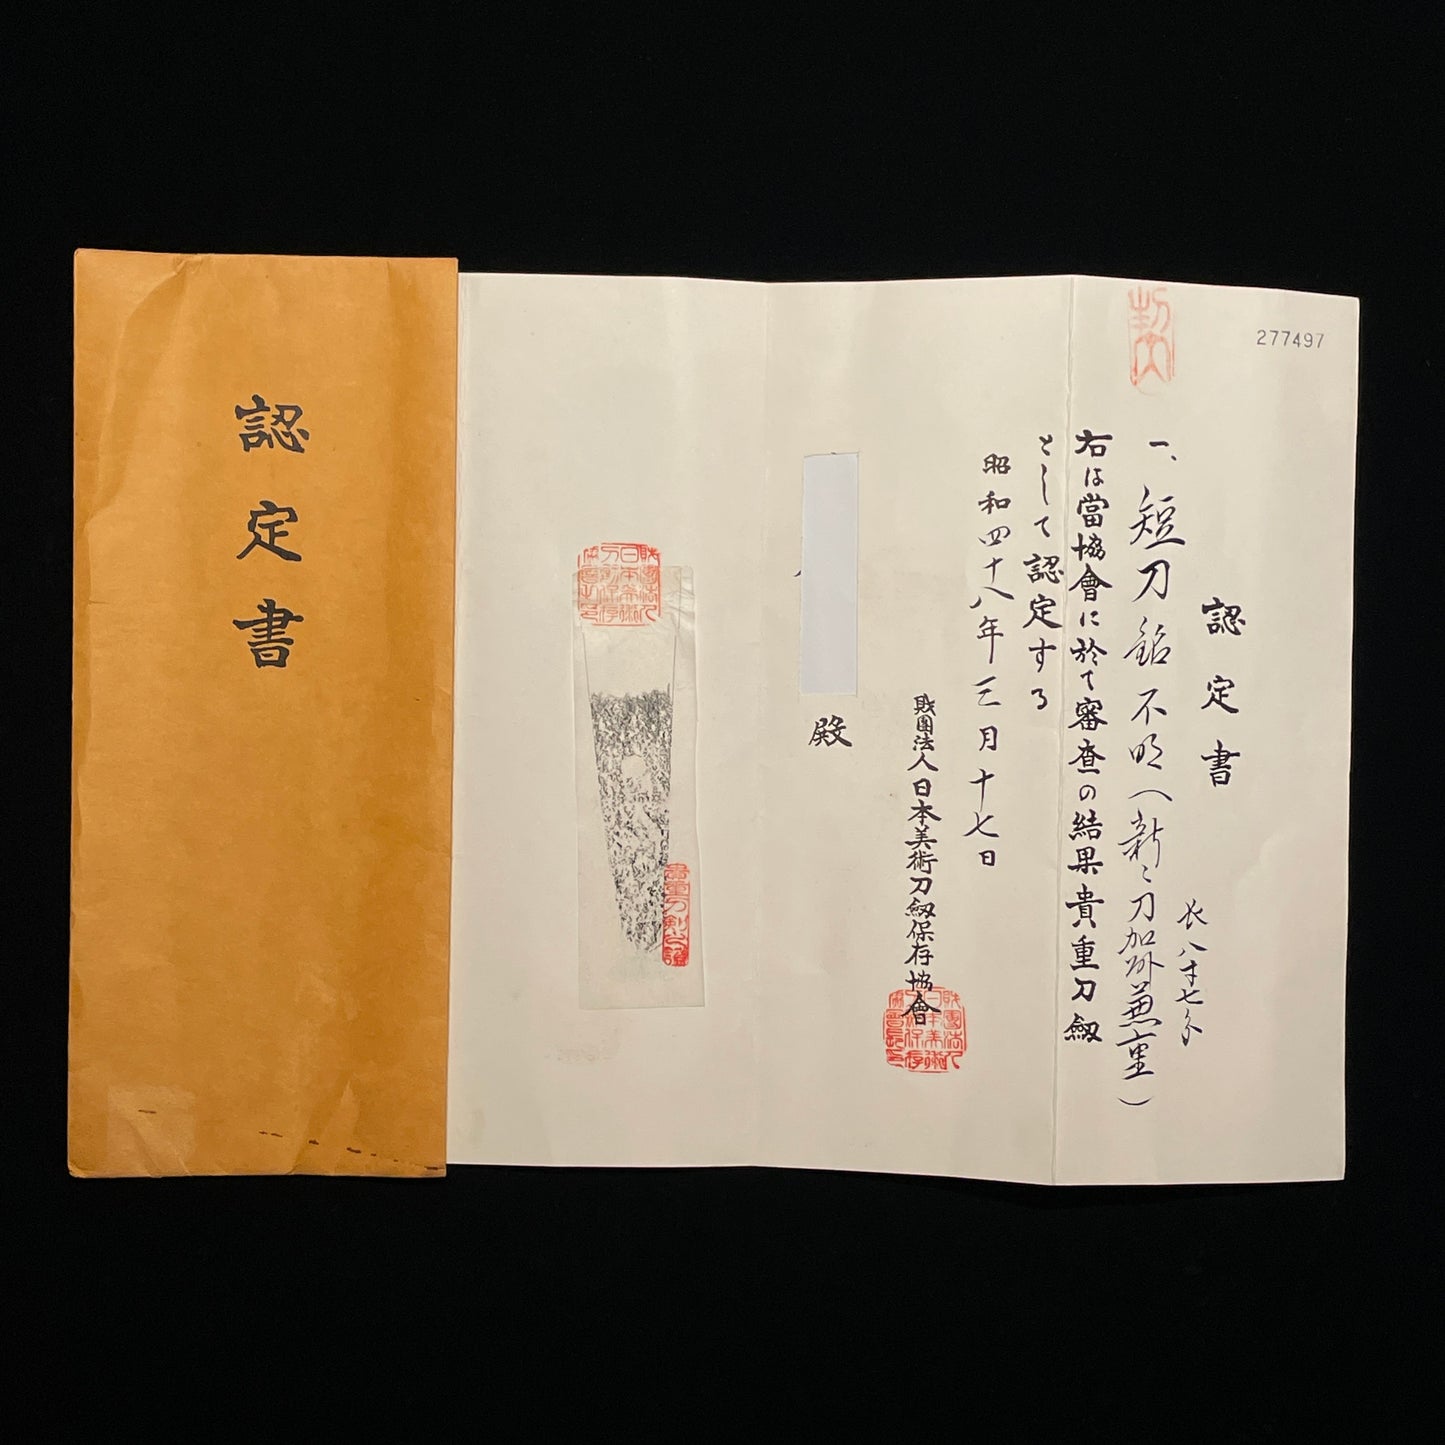 認定書
277497
認定書
長八寸七分
一、短刀銘不明(新々刀加州兼重)
右は當協會に於て審査の結果貴重刀劔
として認定する
昭和四十八年三月十七日
財團法人日本美術刀劔保存協會
殿
貴重刀剣之證